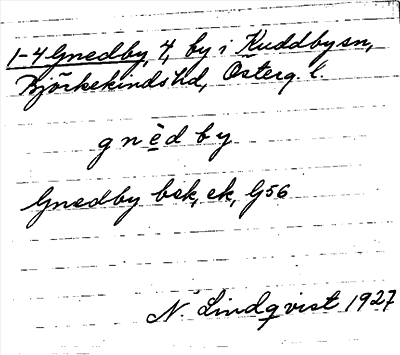 1-4 Gnedby, 4, by i Kuddbysn,
Björkekinds hd, Österg. l.
gnèdby
Gnedby bsk, ek, G56
N. Lindqvist 1927